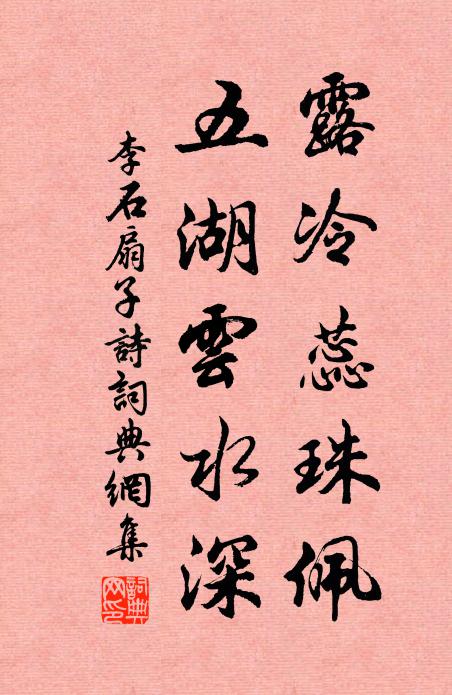 露冷蕊珠佩
五湖雲水深
李石扇子詩詞典網集
詞典網印